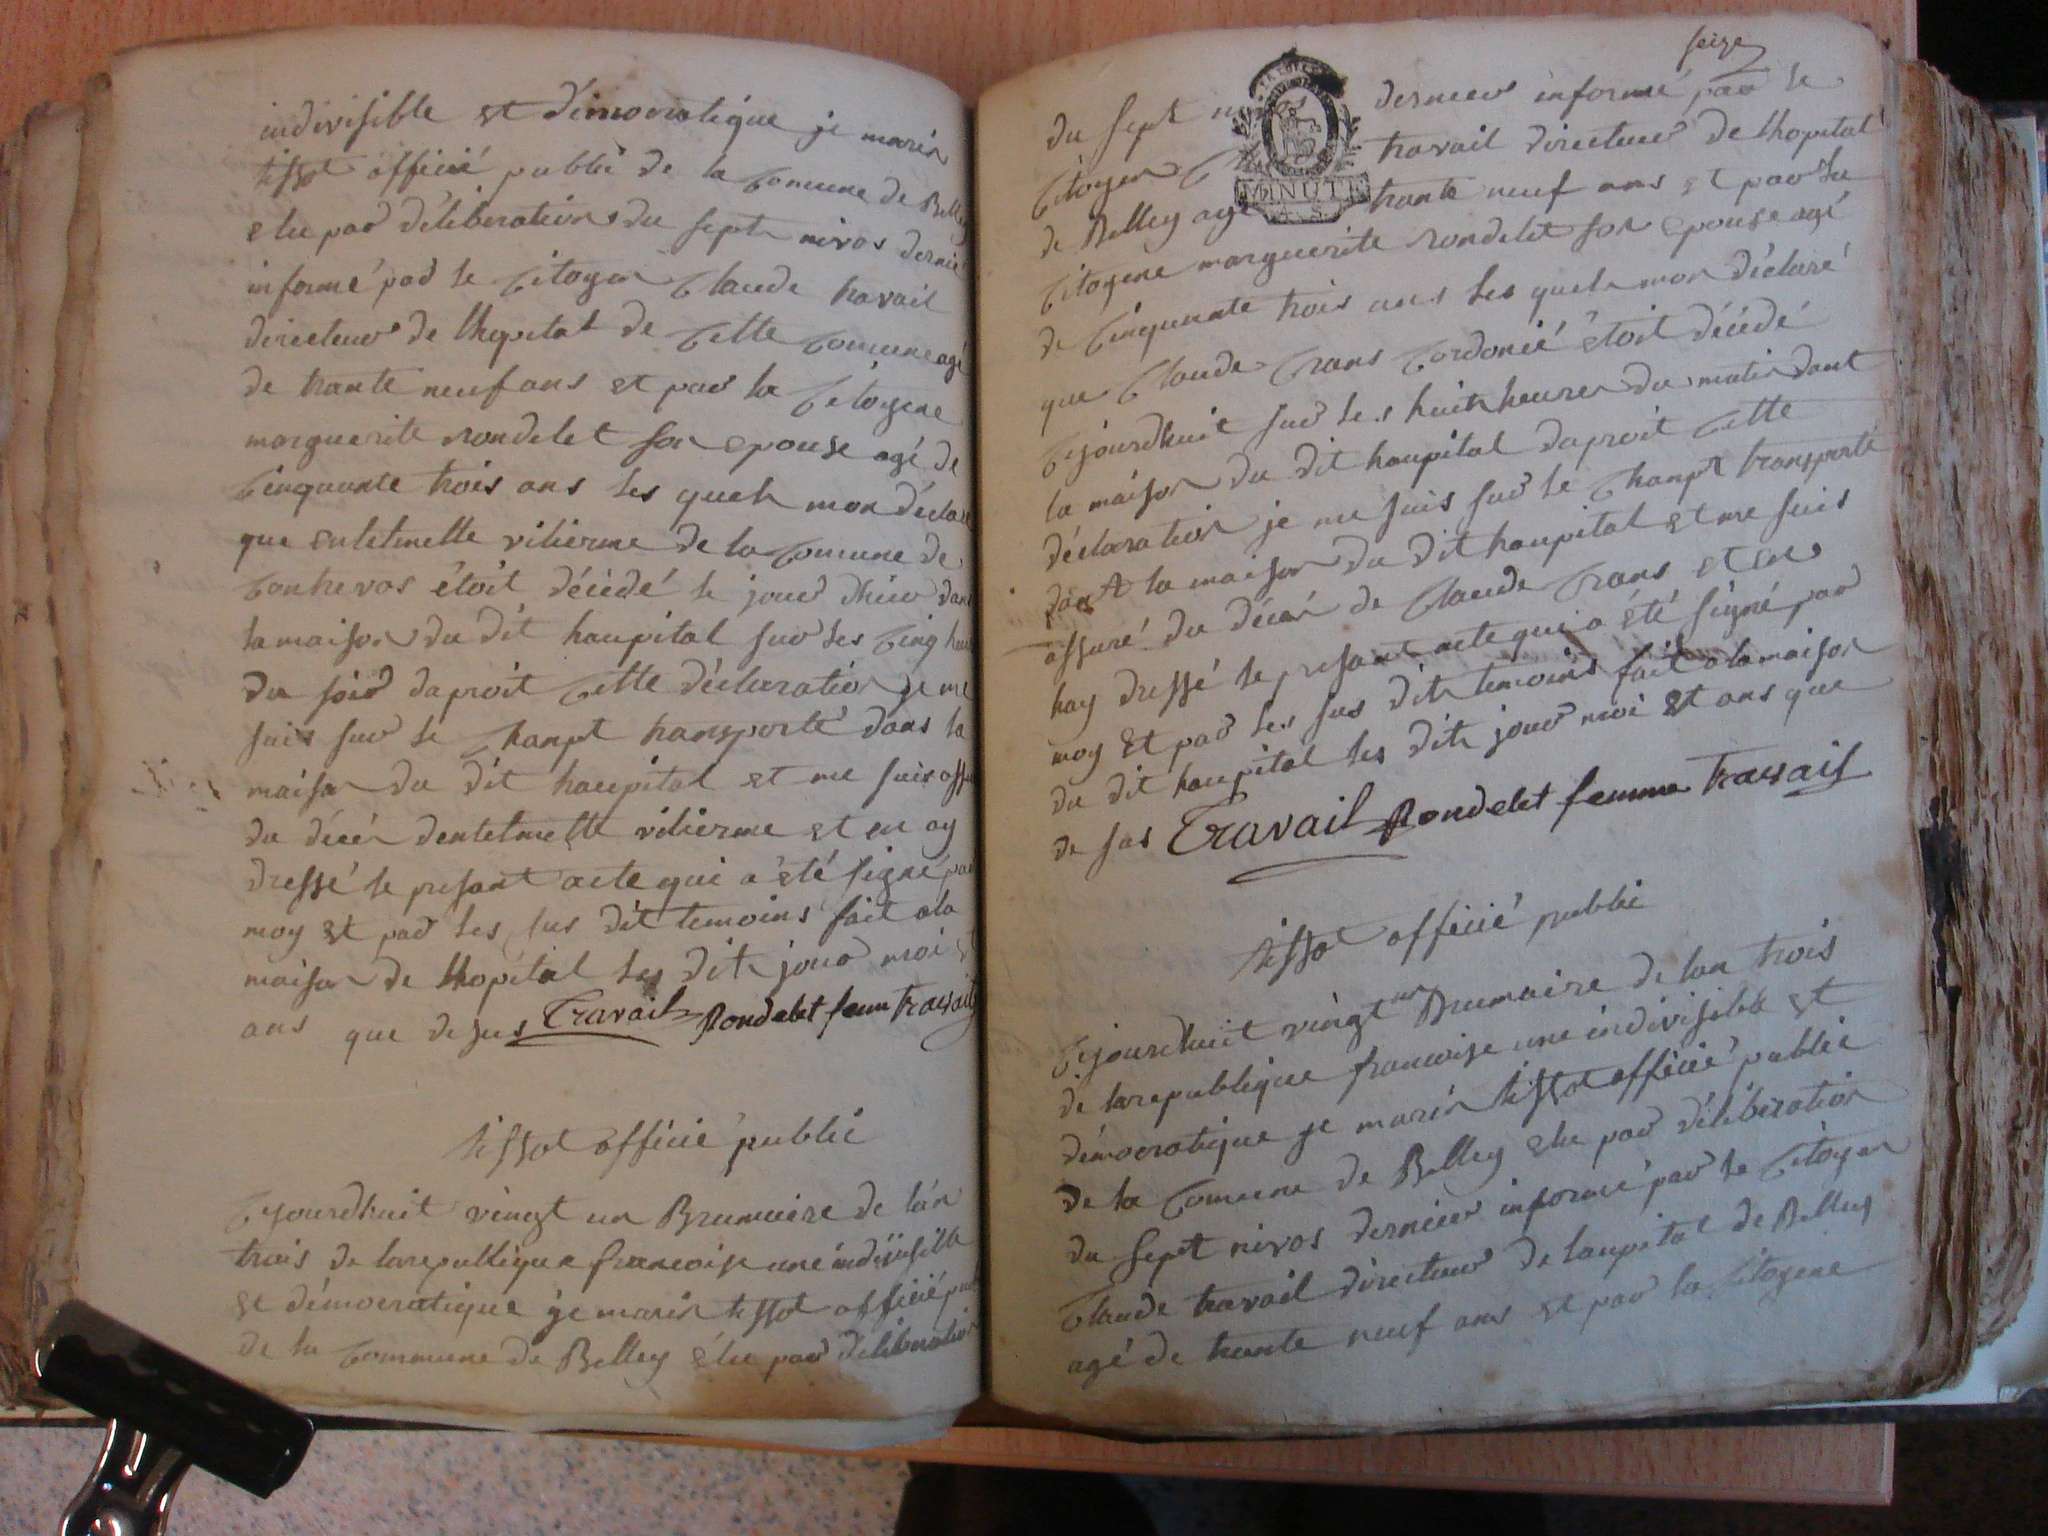 indivisible et démocratique je marin
tissot officié public de la Comune de Belley
elu par délibération du sept nivos dernie
informé par le Citoyen Claude travail
directeur de lhopital de Cette Comune agé
de trante neuf ans et par la Citoyene
marguerite rondelet son epouse agé de
Cinquante trois ans les quels mon déclaré
que entelmette vilierme de la Comune de
Contrevos étoit décédé le jour dhier dans
la maison du dit haupital sur les Cinq heu
du soir daproit Cette déclaration je me
suis sur le Chanpt transporté dans la
maison du dit haupital et me suis assu
du décés dentelmette vilierme et en ay
dressé le presant acte qui a été signé par
moy et par les sus dit temoins fait a la
maison de lhopital les dits jour moi et
ans que desus Travail Rondelet fem Travail
tissot officié public
Cejourdhuit vingt un Brumaire de lan
trois de la republique francoise une indivisible
et démocratique je marin tissot officié pu
de la Commune de Belley élu par délibération
seize
du sept dernier informé par le
Citoyen travail directeur de lhopital
de Belley agé trante neuf ans et par la
MINUTE
Citoyene marguerite rondelet son epouse agé
de Cinquante trois ans les quels mon déclaré
que Claude Crans Cordonié étoit décédé
Cejourdhuit sur les huit heures du matin dant
la maison du dit haupital daproit Cette
déclaration je me suis sur le Chanpt transporté
dant la maison du dit haupital et me suis
assuré du décés de Claude Crans et en
hay dressé le presant acte qui a été signé par
moy et par les sus dits temoins fait a la maison
du dit haupital les dits jour moi et ans que
de sus Travail Rondelet femme Travail
tissot officié public
Cejourdhuit vingt un Brumaire de lan trois
de la republique francoise une indivisible et
démocratique je marin tissot officié public
de la Comune de Belley elu par délibération
du sept nivos dernier informé par le Citoyen
Claude travail directeur de laupital de Belley
agé de trante neuf ans et par la Citoyene